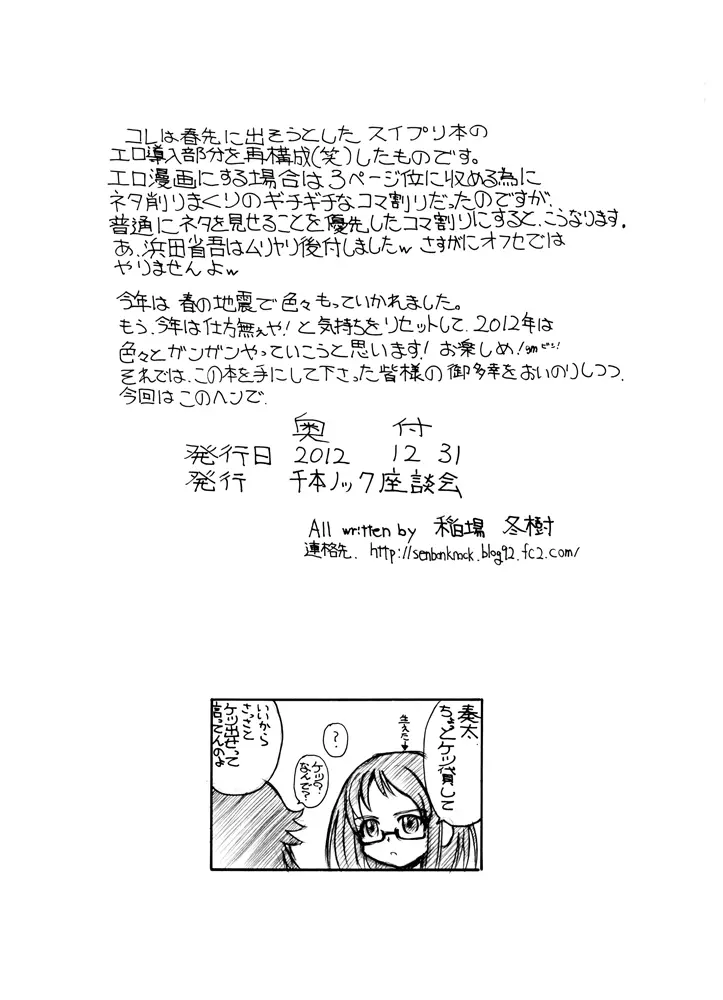 コレは春先に出そうとした スイプリ本の
エロ導入部分を再構成(笑)したものです。
エロ漫画にする場合は3ページ位に収める為に
ネタ削りまくりのギチギチなコマ割りだったのですが、
普通にネタを見せることを優先したコマ割りにすると、こうなります。
あ、浜田省吾はムリヤリ後付しましたw さすがにオフセでは
やりませんよw
今年は 春の地震で色々もっていかれました。
もう、今年は仕方無ぇや! と気持ちをリセットして、2012年は
色々とガンガンやっていこうと思います! お楽しめ!
それでは、この本を手にして下さった皆様の 御多幸をおいのりしつつ、
今回はこのヘンで、
奥 付
発行日 2012 12 31
発行 千本ノック座談会
All written by 稲場 冬樹
連絡先、http://senbonknock.blog92.fc2.com/
奏太
ちょっとケツ貸して
生えた
?
ケツ?
なんで?
いいから
さっさと
ケツ出せって
言ってんのよ